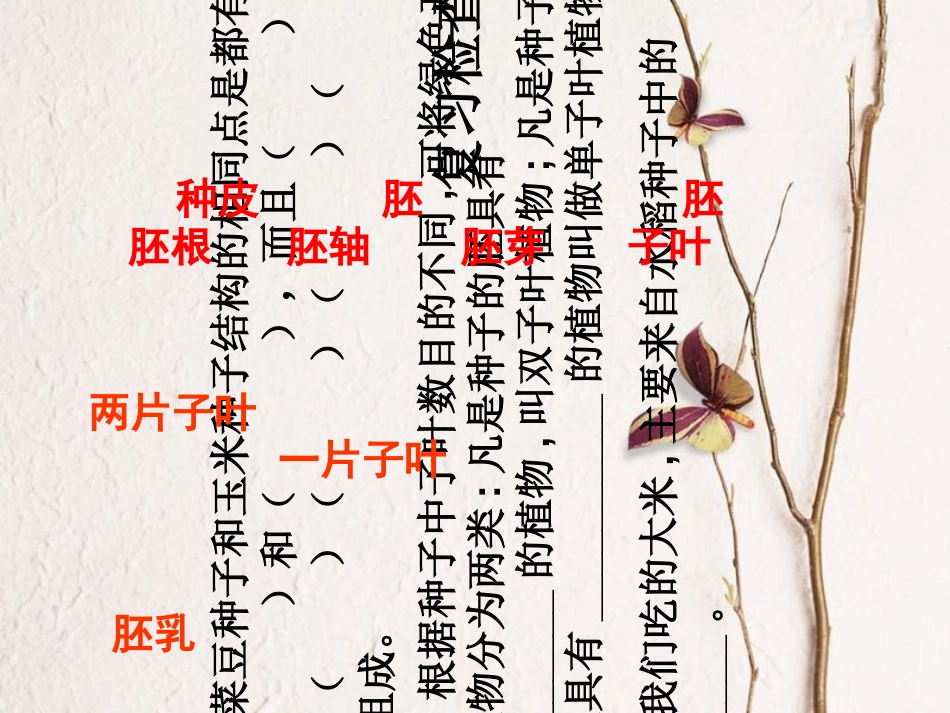 复习检查
菜豆种子和玉米种子结构的相同点是都有
）和（ ），而且（ ）
（ ）（ ）（ ）（
组成。
根据种子中子叶数目的不同，可将绿色
物分为两类：凡是种子的胚具有
______的植物，叫双子叶植物；凡是种子
具有______的植物叫做单子叶植物
我们吃的大米，主要来自水稻种子中的
______。
种皮 胚 胚
胚根 胚轴 胚芽 子叶
两片子叶
一片子叶
胚乳